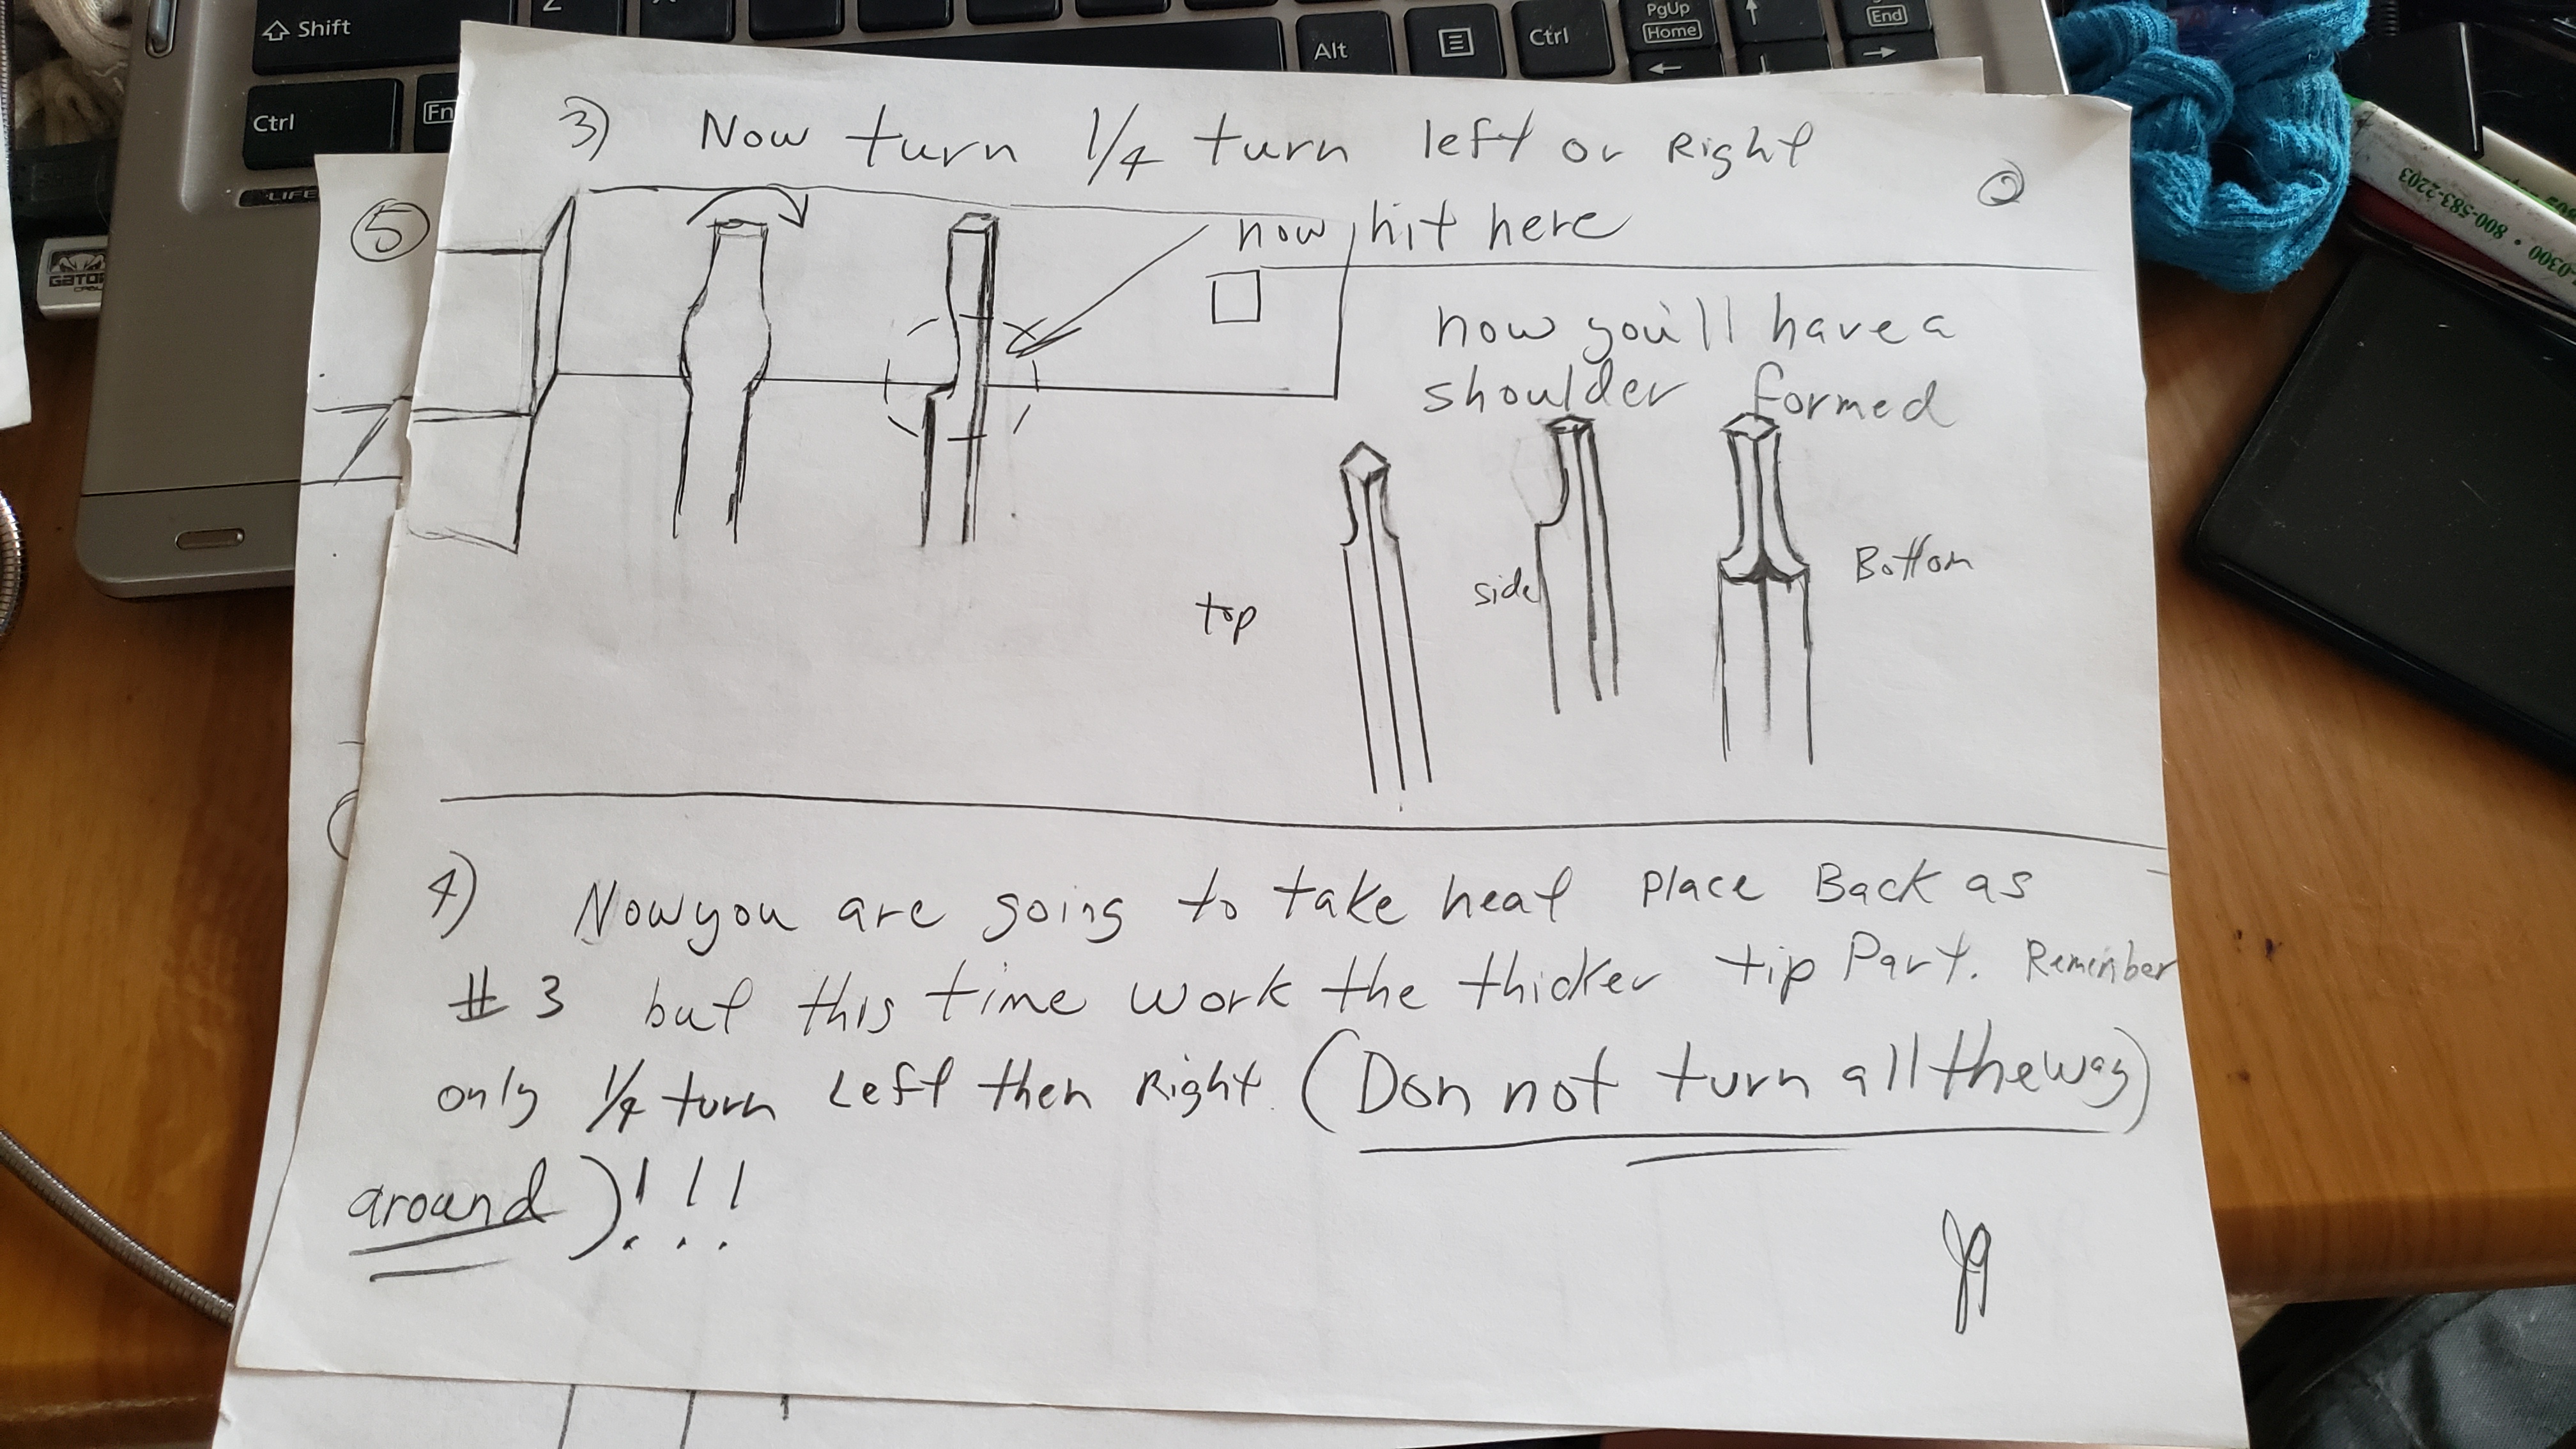 Shift
Z
Alt
Ctrl
PgUp
Home
End
Ctrl
Fn
LIFE
GATOR
800-583-2203
3) Now turn 1/4 turn left or Right
2
5
now hit here
now you'll have a
shoulder formed
top
side
Bottom
4) Now you are going to take heat place Back as
#3 but this time work the thicker tip Part. Remember
only 1/4 turn Left then Right. (Don not turn all the way)
around)!!!